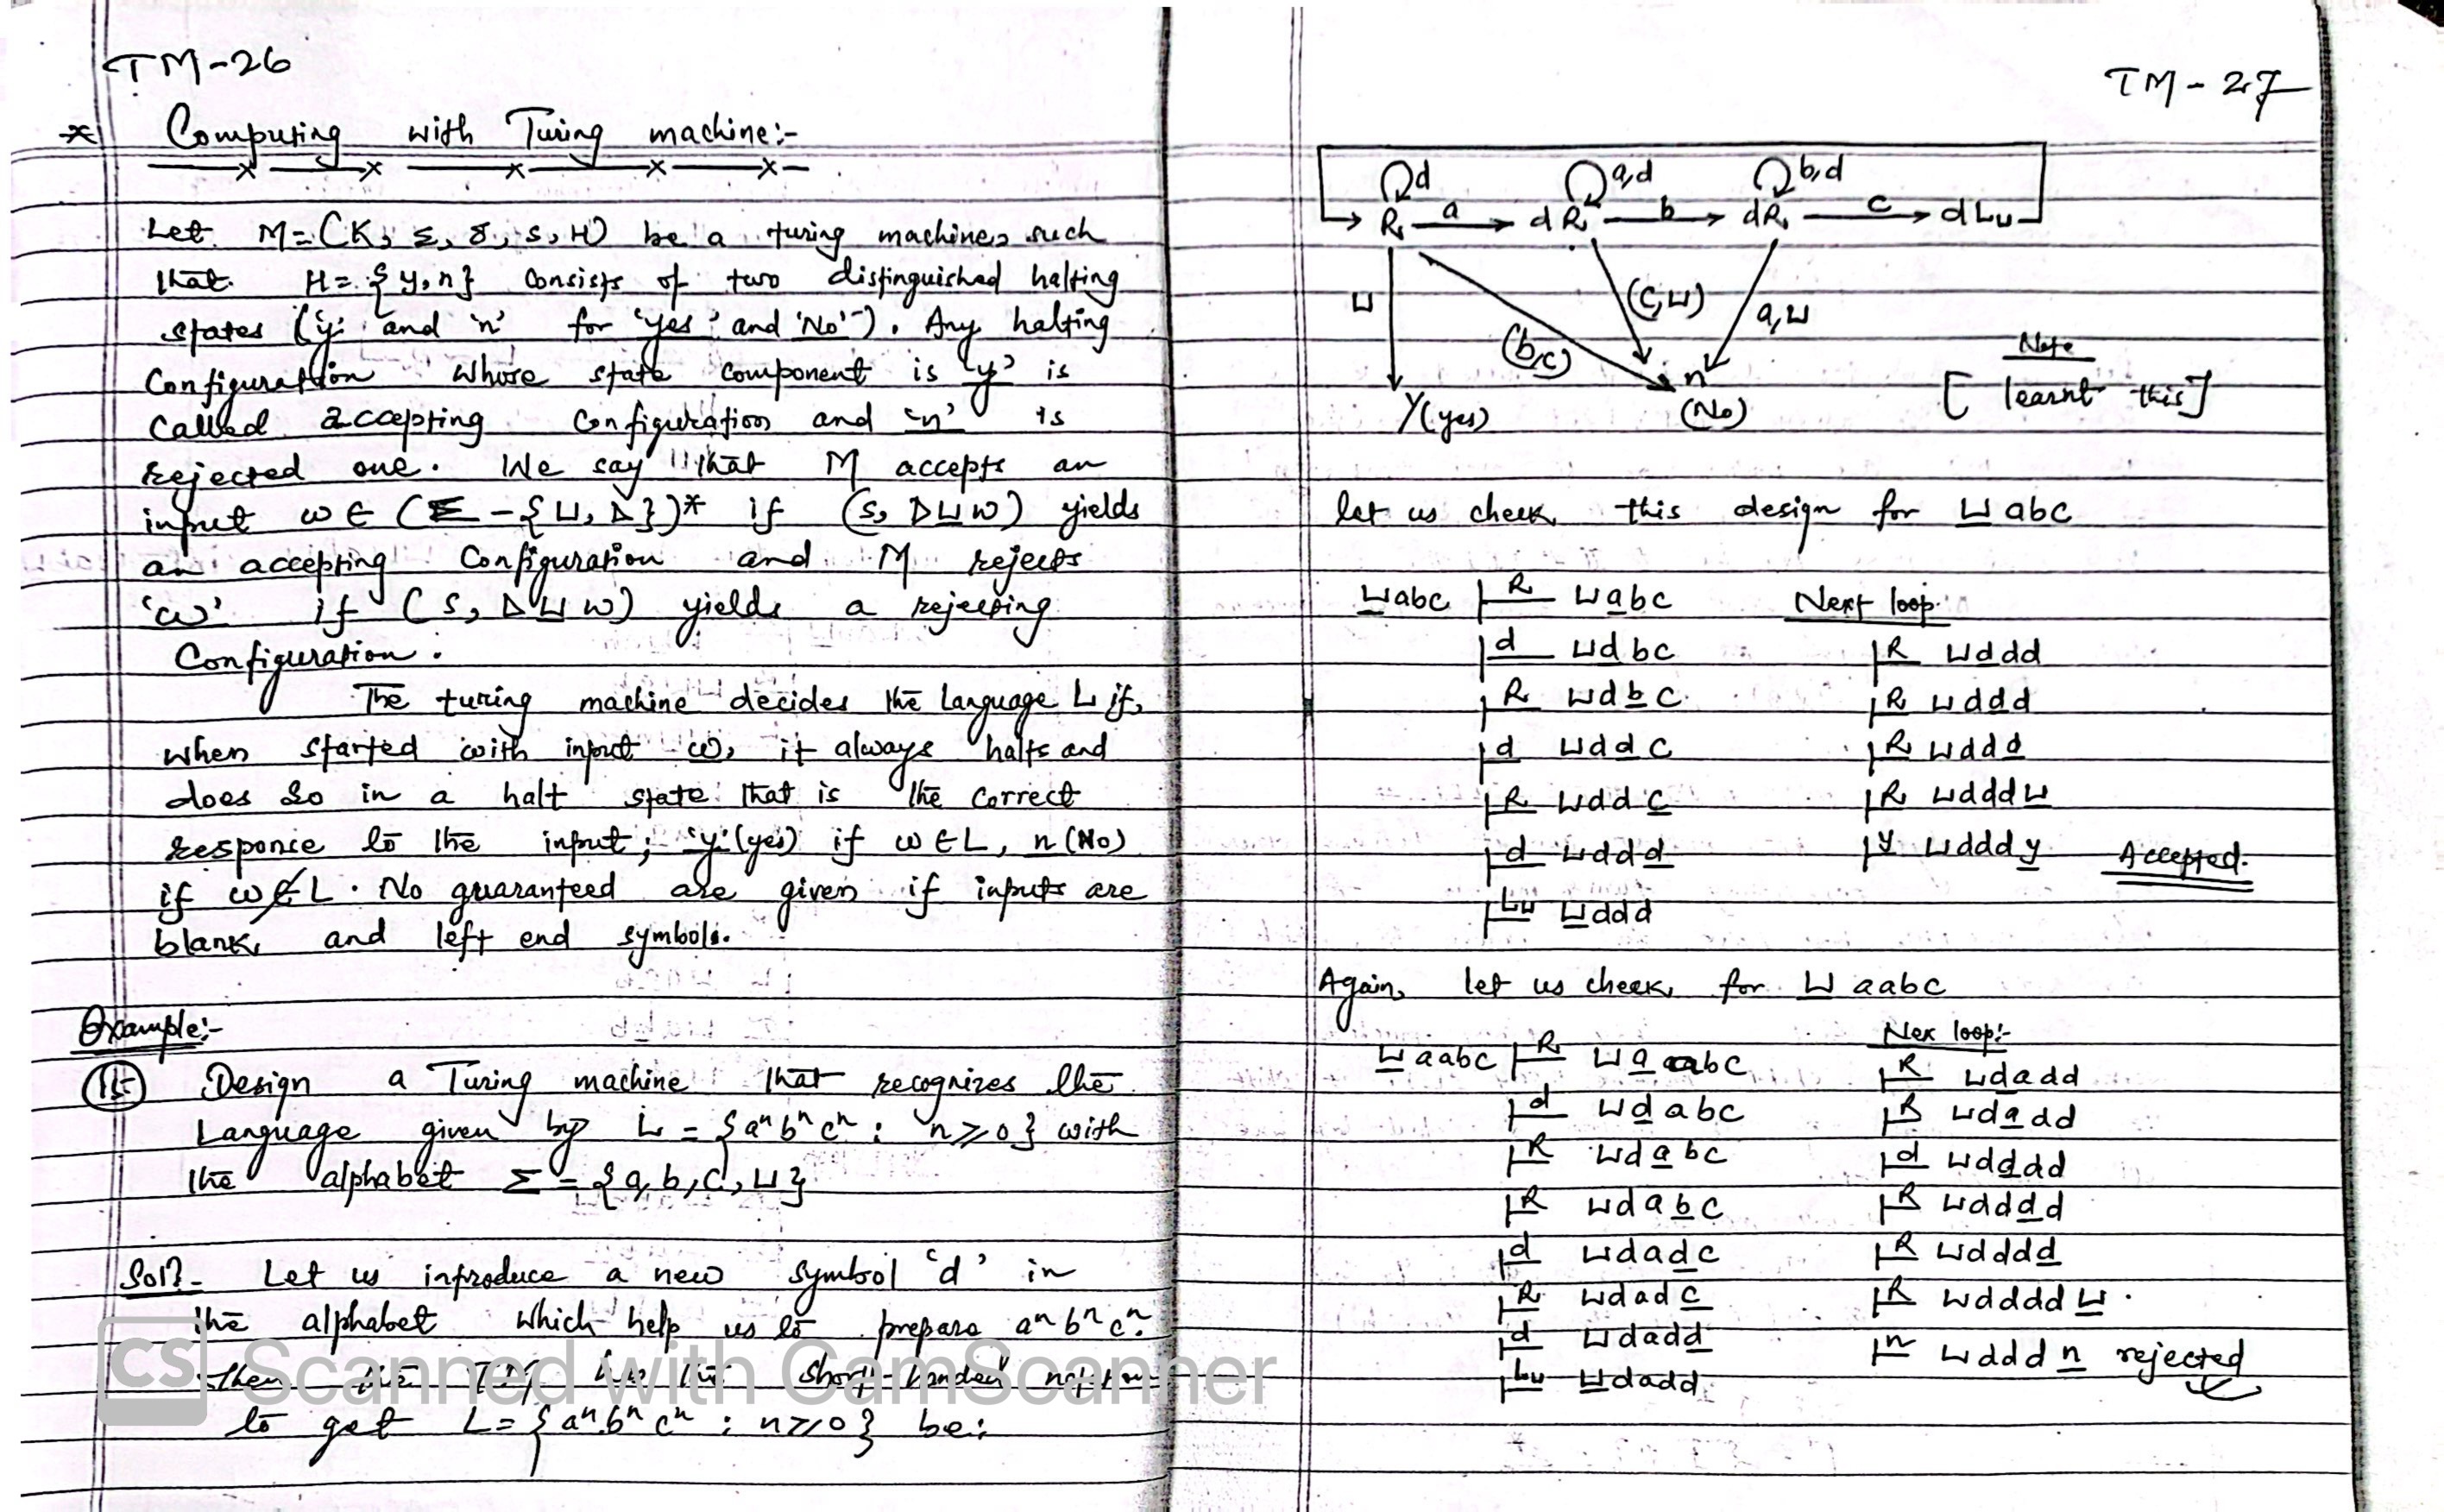 TM-26
* Computing with Turing machine:-
Let M=(K, Σ, δ, s, H) be a turing machine, such
that H = {y, n} consists of two distinguished halting
states ('y' and 'n' for 'yes' and 'No'). Any halting
Configuration whose state component is 'y' is
called accepting configuration and 'n' is
rejected one. We say that M accepts an
input w ∈ (Σ - {⊔, ▷})* if (s, ▷⊔w) yields
an accepting configuration and M rejects
'w' if (s, ▷⊔w) yields a rejecting
Configuration.
The turing machine decides the language L if,
when started with input w, it always halts and
does so in a halt state that is the correct
response to the input; 'y' (yes) if w∈L, n (No)
if w∉L. No guaranteed are given if inputs are
blank and left end symbols.
Example:-
15 Design a Turing machine that recognizes the
Language given by L = {aⁿbⁿcⁿ : n≥0} with
the alphabet Σ = {a, b, c, ⊔}
Solⁿ- Let us introduce a new symbol 'd' in
the alphabet which help us to prepare aⁿbⁿcⁿ.
Then the TM has the short-handed notation
to get L = {aⁿbⁿcⁿ : n≥0} be:
CS Scanned with CamScanner
TM-27
d a,d b,d
R a dR b dR c dL⊔
⊔ (b,c) (c,⊔) a,⊔
n
(No)
y(yes)
Note
[learnt this]
let us check this design for ⊔abc
⊔abc |R ⊔abc Next loop:
|d ⊔dbc |R ⊔ddd
|R ⊔dbc |R ⊔ddd
|d ⊔ddc |R ⊔ddd
|R ⊔ddc |R ⊔ddd⊔
|d ⊔ddd |y ⊔dddy Accepted.
|L⊔ ⊔ddd
Again, let us check for ⊔aabc
⊔aabc |R ⊔aabc Nex loop:-
|R ⊔dadd
|d ⊔dabc |R ⊔dadd
|R ⊔dabc |d ⊔dddd
|R ⊔dabc |R ⊔dddd
|d ⊔dadc |R ⊔dddd
|R ⊔dadc |R ⊔dddd⊔.
|d ⊔dadd |n ⊔dddn rejected
|L⊔ ⊔dadd